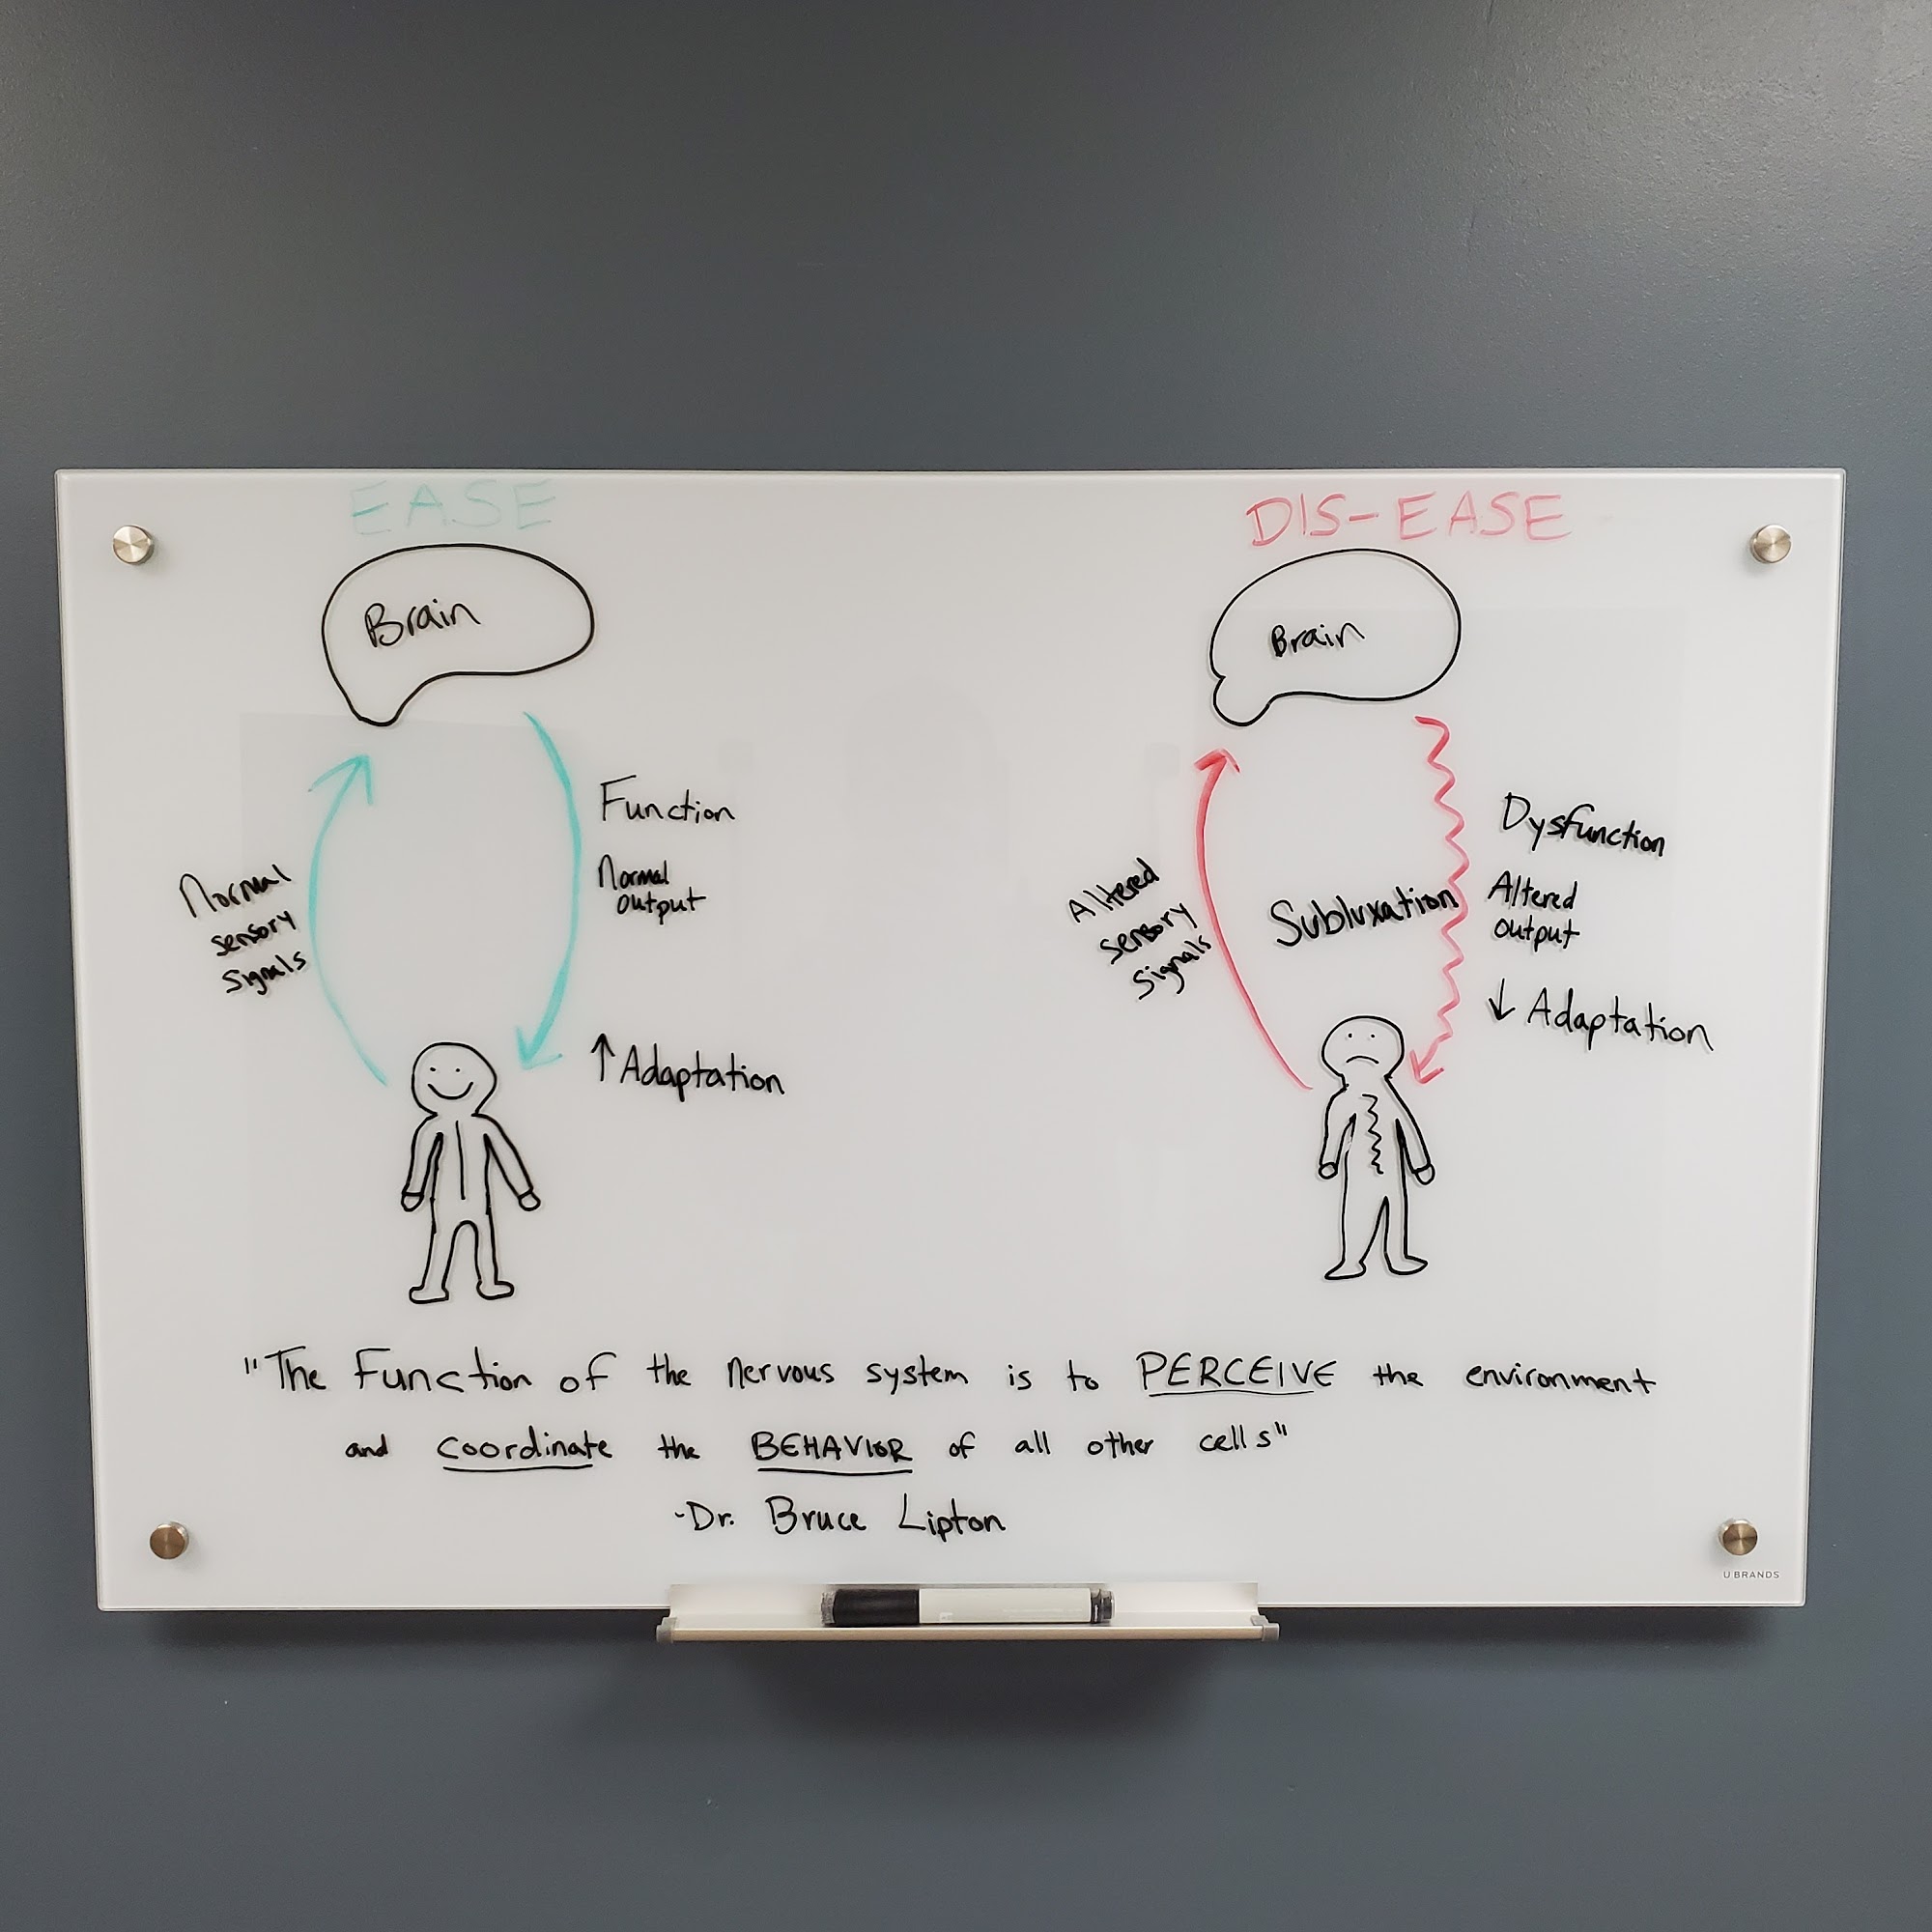 EASE
Brain
Normal
sensory
signals
Function
Normal
output
↑ Adaptation
DIS-EASE
Brain
Altered
sensory
signals
Subluxation
Dysfunction
Altered
output
↓ Adaptation
"The Function of the nervous system is to PERCEIVE the environment
and coordinate the BEHAVIOR of all other cells"
-Dr. Bruce Lipton
U BRANDS